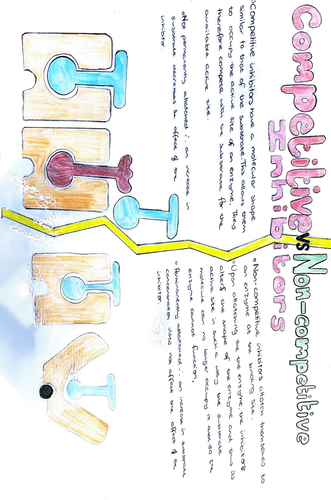 Competitive vs Non-competitive
Inhibitors
Competitive inhibitors have a molecular shape
similar to that of the substrate. This allows them
to occupy the active site of an enzyme. They
therefore compete with the substrate for the
available active site.
Not permanently attatched ∴ an increase in
substrate decreases the affect of the
inhibitor
Non-competitive inhibitors attatch themselves to
an enzyme at the binding site.
Upon attatching the the enzyme, the inhibitors
alters the shape of the enzyme and thus its
active site in such a way the substrate
molecule can no longer occupy it and so the
enzyme cannot function.
Permanently attatched ∴ an increase in substrate
concentration does not affect the affect of the
inhibitor